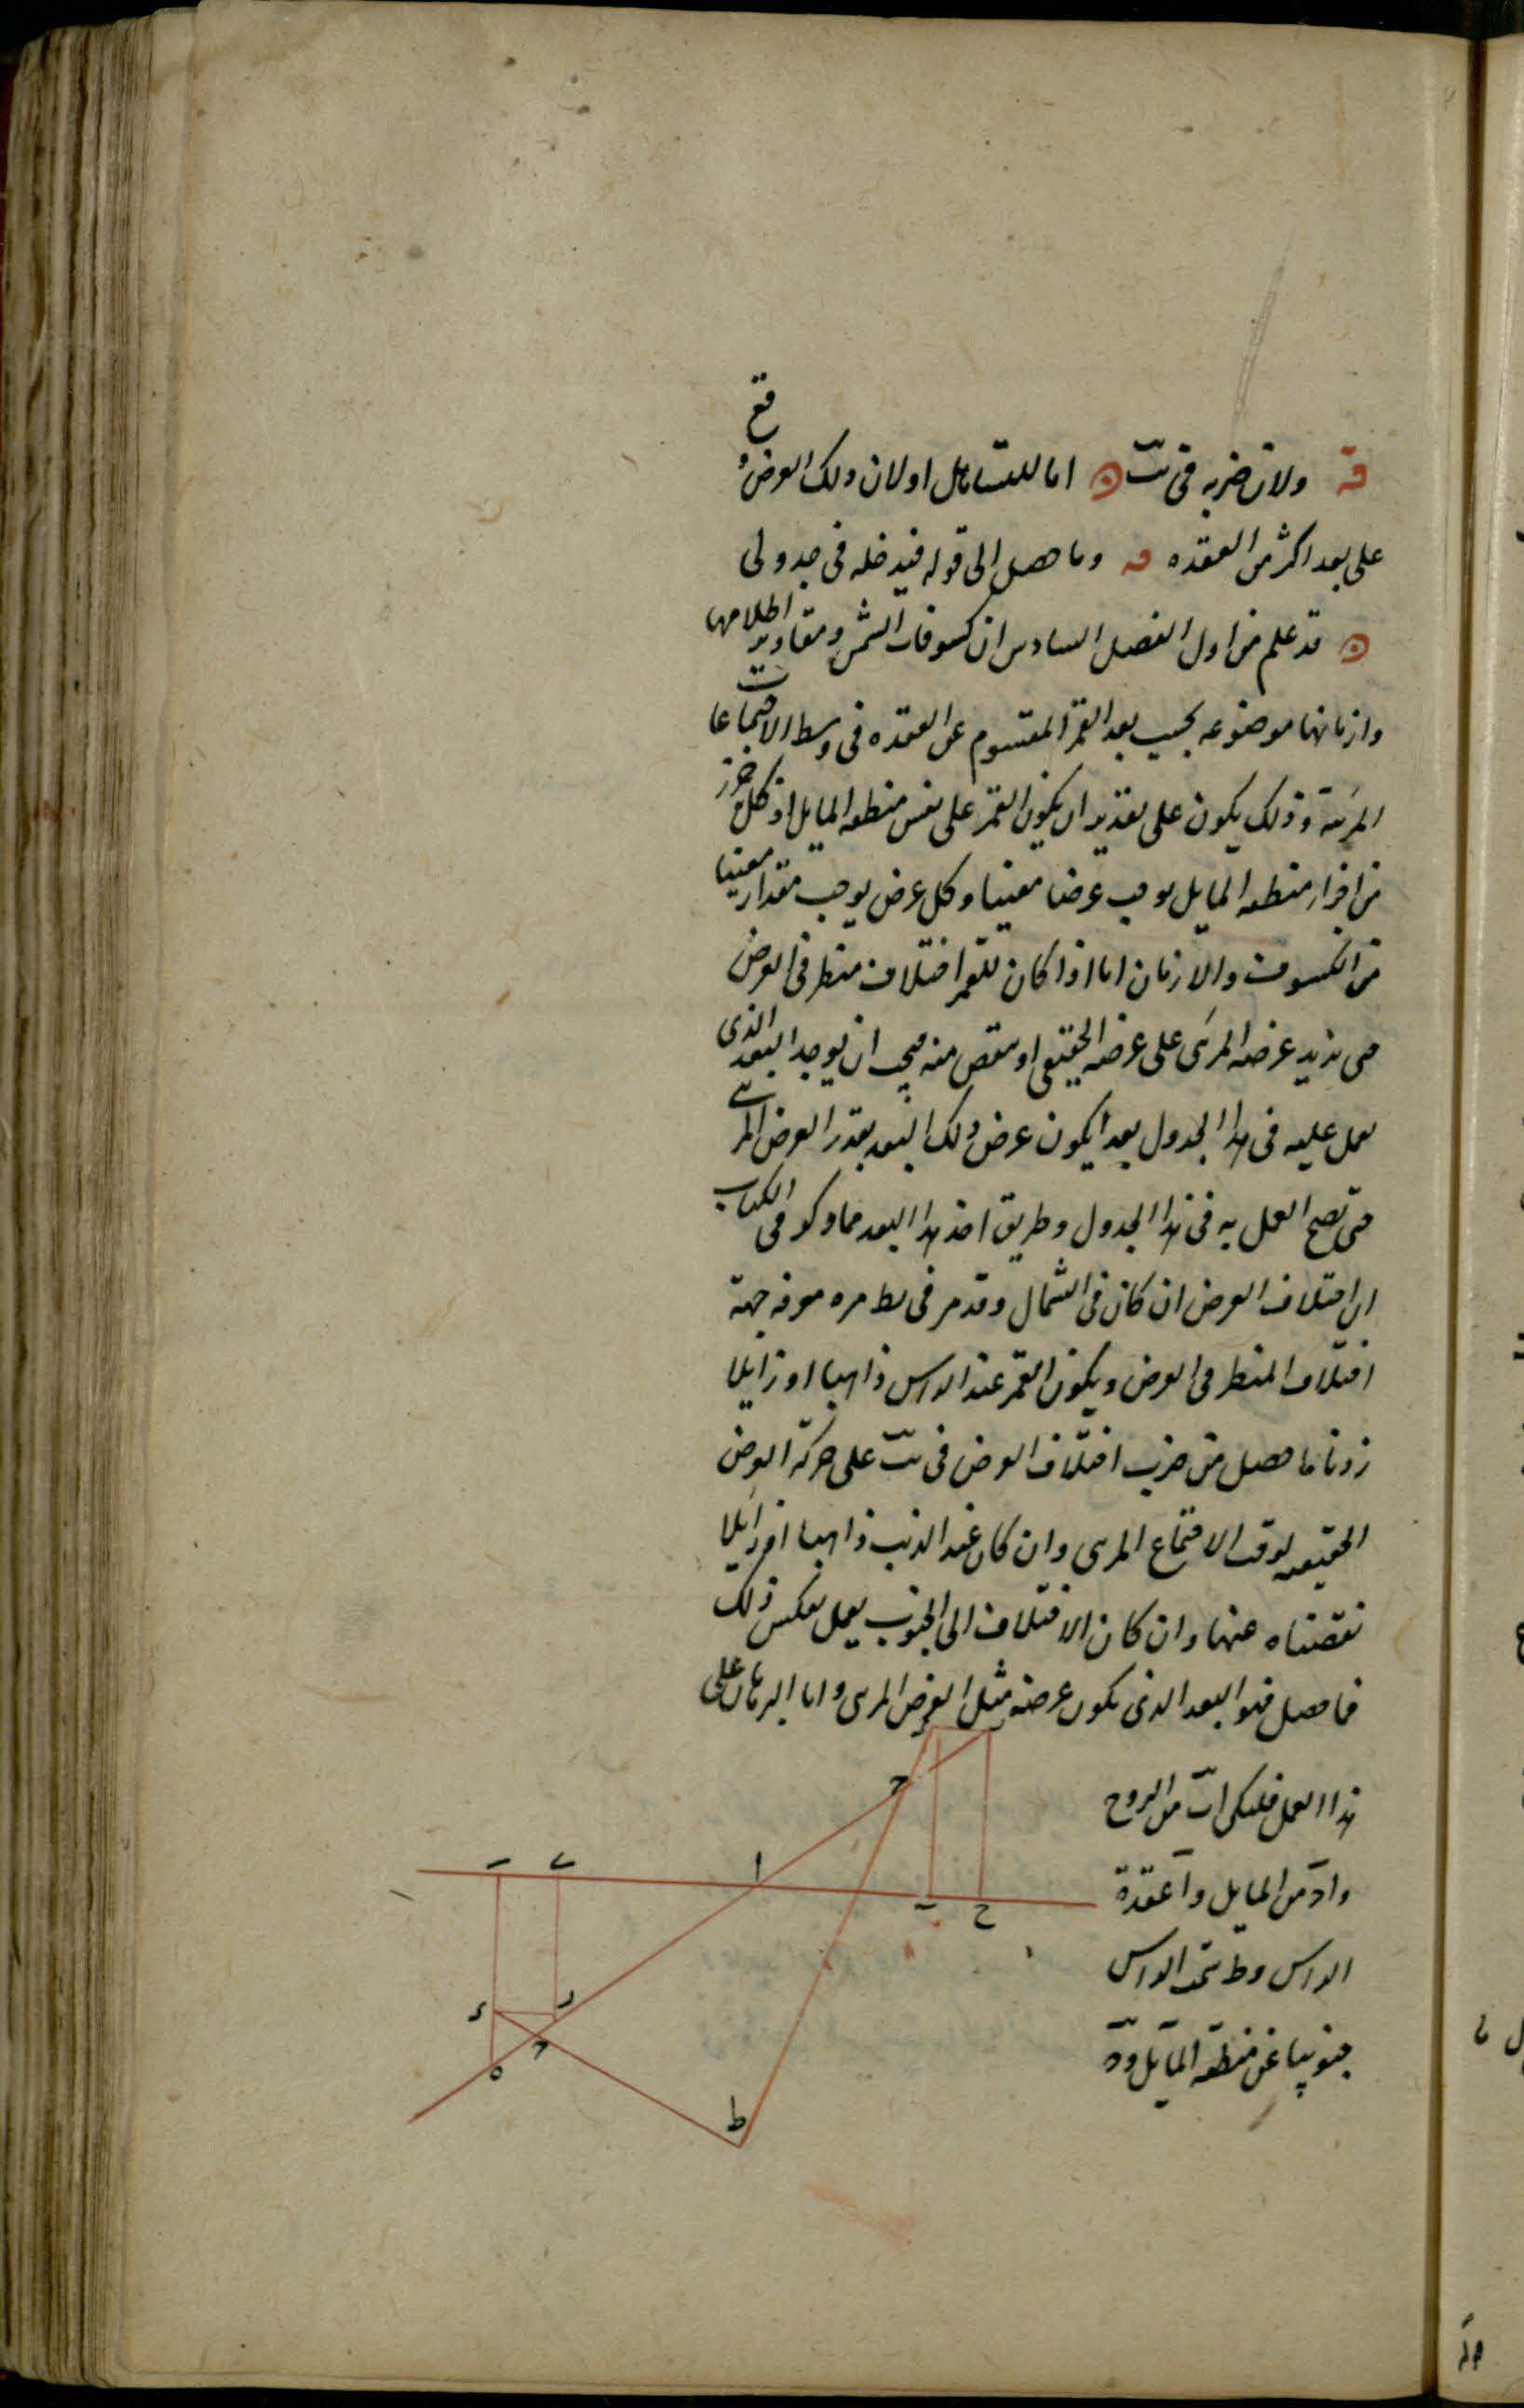 قه ولان ضربه فى يب ۞ اما للتساهل اولان ذلك العرض وقع
على بعد اكثر من العقده قه وما حصل الى قوله فيدخله فى جدولى
۞ قد علم من اول الفصل السادس ان كسوفات الشمس ومقادير اظلامها
وازمانها موضوعه بحسب بعد القمر المقسوم عن العقده فى وسط الاجتماعات
المرئية وذلك يكون على تقدير ان يكون القمر على نفس منطقه المايل اذ كل جزء
من اجزاء منطقه المايل يوجب عرضا معينا وكل عرض يوجب مقدارا معينا
من الكسوف والازمان اما اذا كان للقمر اختلاف منظر فى العرض
حتى يزيد عرضه المرئى على عرضه الحقيقى او ينقص منه يجب ان يوجد البعد الذى
يعمل عليه فى هذا الجدول بعدا يكون عرض ذلك البعد بقدر العرض المرئى
حتى يصح العمل به فى هذا الجدول وطريق اخذ هذا البعد مما ذكر فى الكتاب
ان اختلاف العرض ان كان فى الشمال وقد مر فى يط من ه معرفه جهة
اختلاف المنظر فى العرض ويكون القمر عند الراس ذاهبا او زايلا
زدنا ما حصل من ضرب اختلاف العرض فى يب على حركة العرض
الحقيقيه لوقت الاجتماع المرئى وان كان عند الذنب ذاهبا او زايلا
نقصناه عنها وان كان الاختلاف الى الجنوب يعمل بعكس ذلك
فما حصل فهو البعد الذى يكون عرضه مثل العرض المرئى واما البرهان على
هذا العمل فليكن اب من البروج
واد من المايل وا عقدة
الراس وط سمت الراس
جنوبيا عن منطقه المايل ود
ح
ا
ب
ط
ه